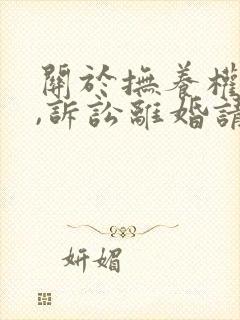 關於撫養權
,訴訟離婚請
妍媚